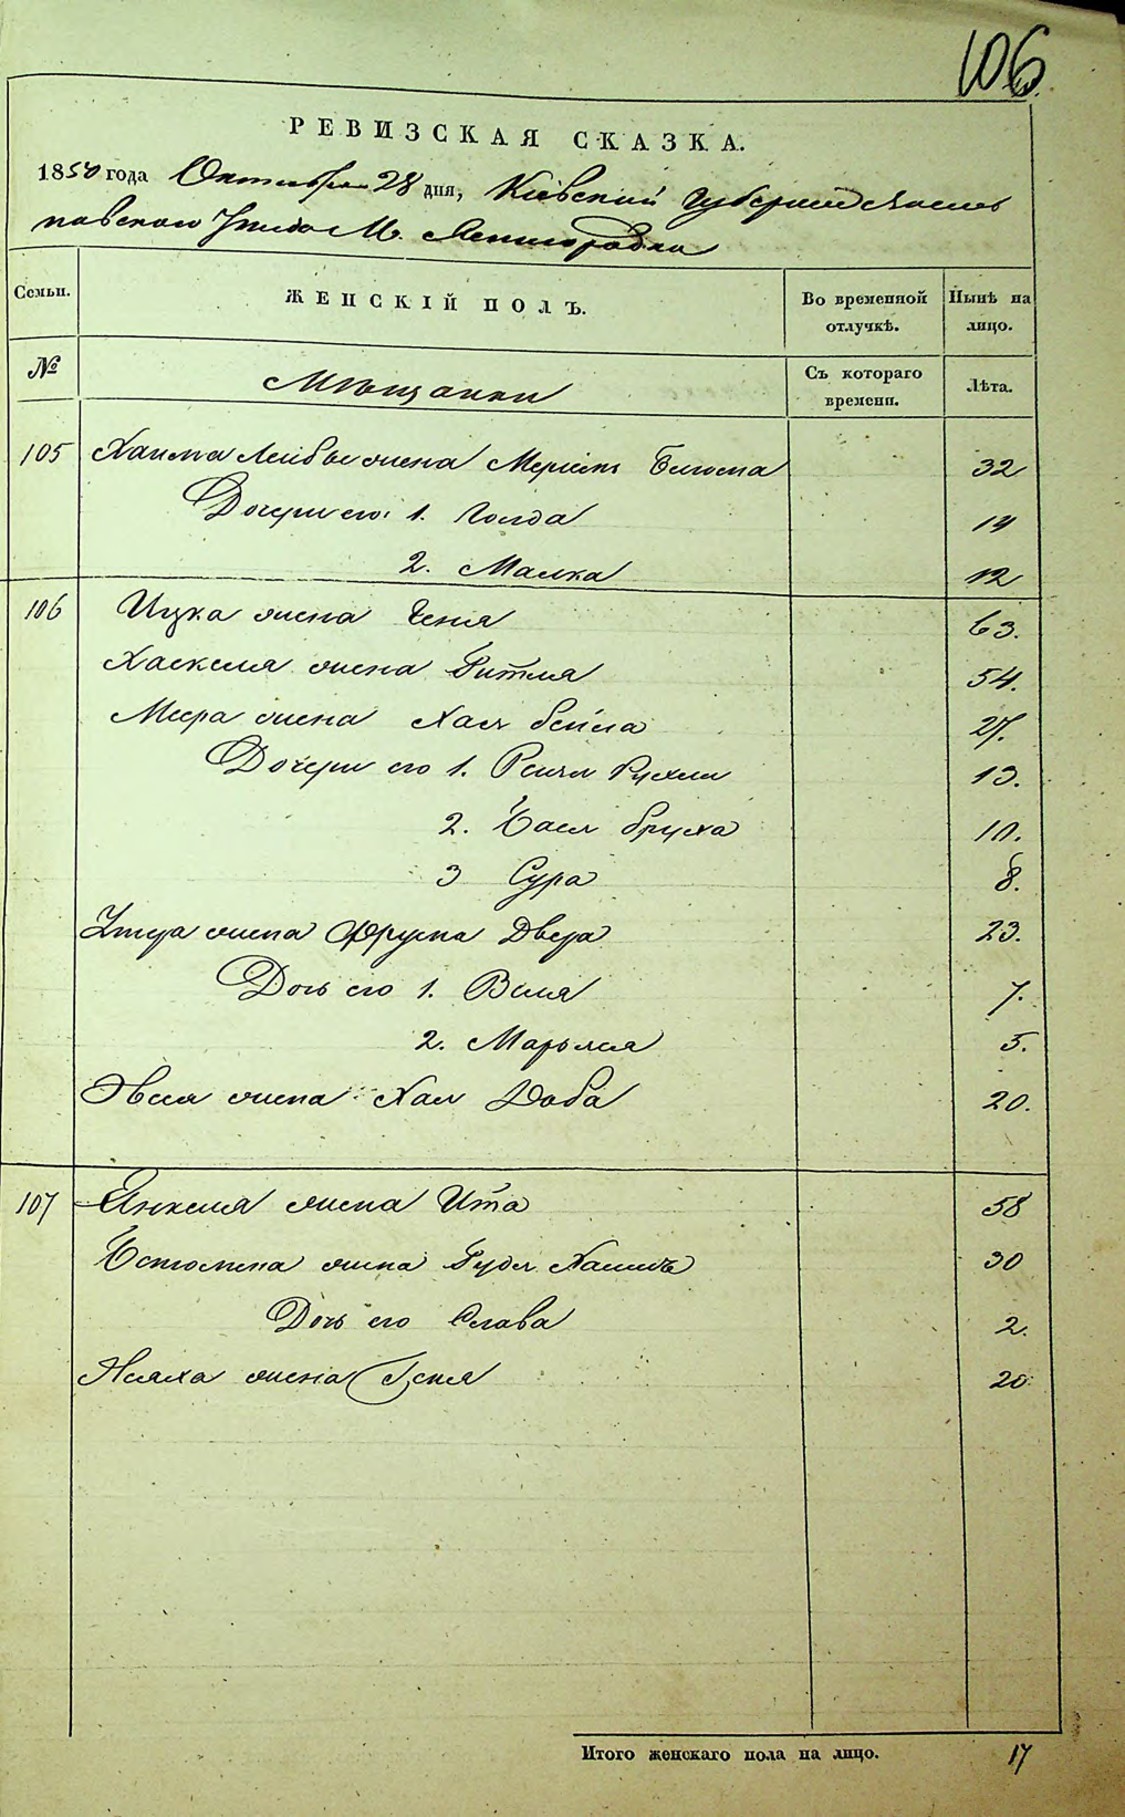 106.
РЕВИЗСКАЯ СКАЗКА.
1850 года Октября 28 дня, Кіевской Губерніи Василь
ковскаго Уезда М. Ясногородки
Семьи. ЖЕНСКІЙ ПОЛЪ. Во временной отлучкѣ. Нынѣ на лицо.
№ Мѣщанки Съ котораго времени. Лѣта.
105 Хаима Лейбы жена Мериемъ 32
Дочери его: 1. Голда 14
2. Малка 12
106 Ицка жена Геня 63.
Хаскеля жена Гитля 54.
Меера жена Хая Бейла 27.
Дочери его 1. Рухля 13.
2. Бася Бруха 10.
3 Сура 8.
жена Фрума Двера 23.
Дочь его 1. Веля 7.
2. Марьяся 5.
жена Хая Доба 20.
107 Янкеля жена Ита 58
жена Рудя 30
Дочь его Слава 2.
жена Геня 20
Итого женскаго пола на лицо. 17